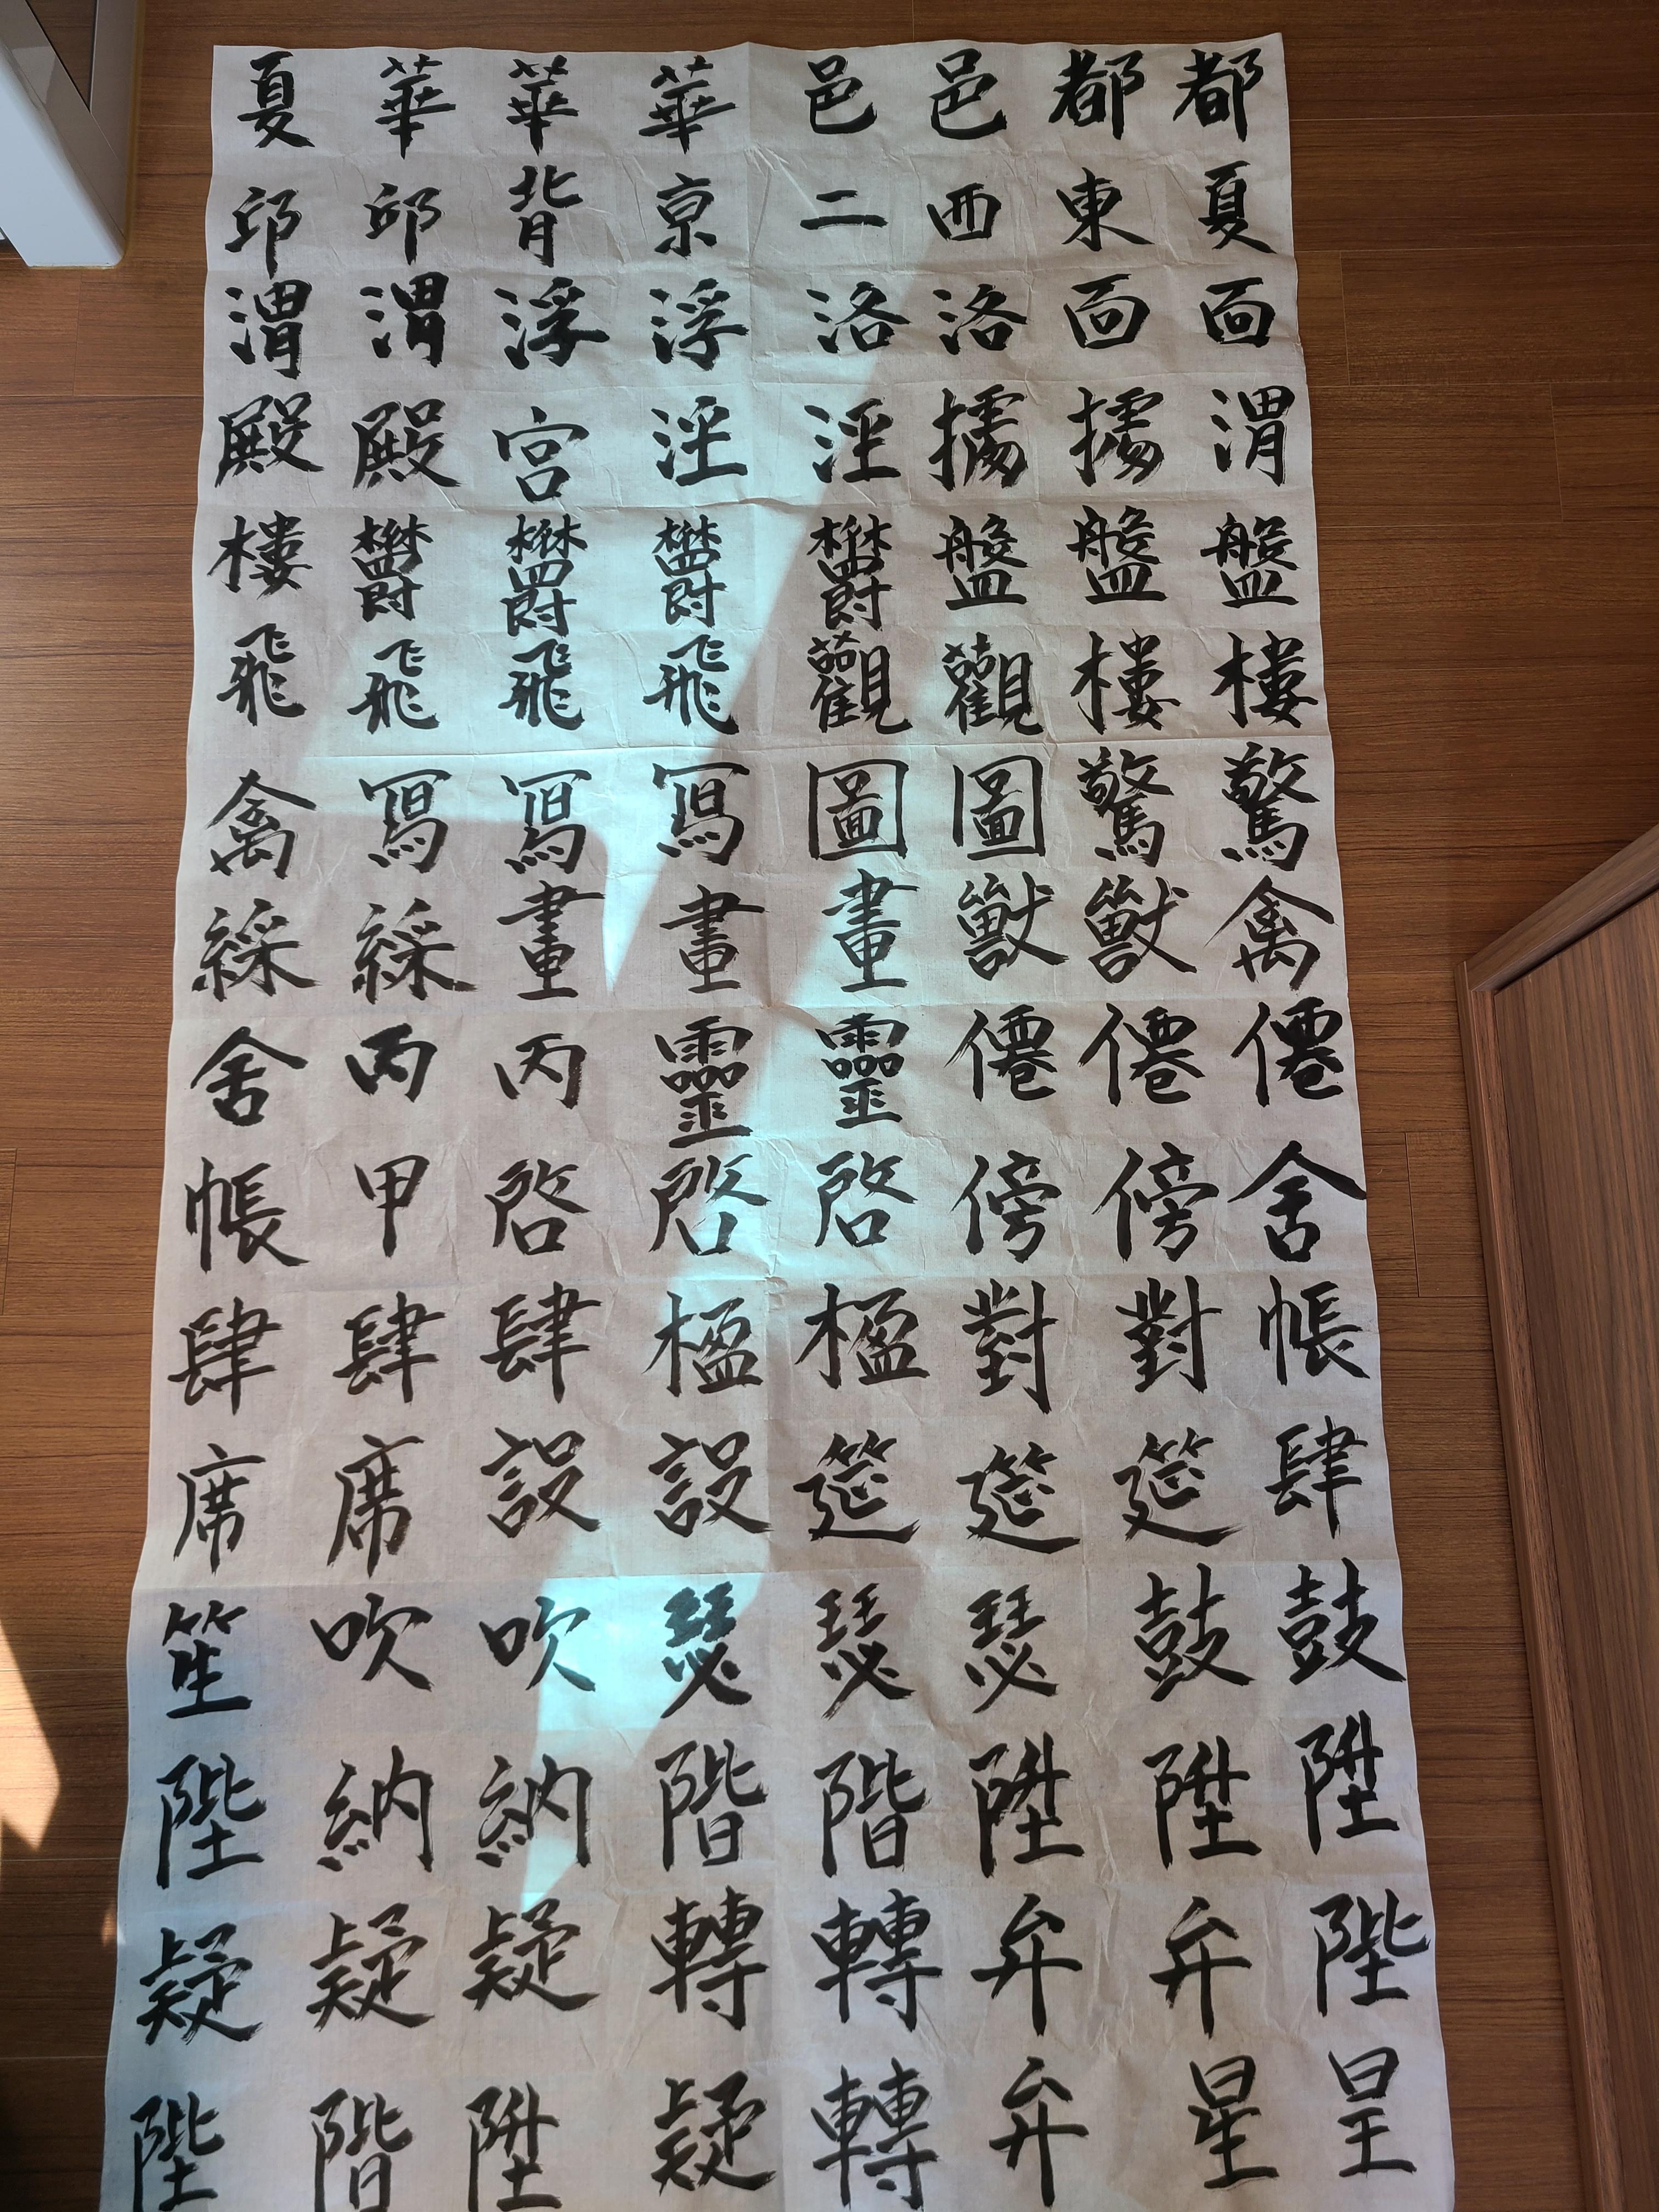 都都邑邑華華華夏
夏東西二京背邙邙
面面洛洛浮浮渭渭
渭據據涇涇宮殿殿
盤盤盤鬱鬱鬱鬱樓
樓樓觀觀飛飛飛飛
驚驚圖圖寫寫寫禽
禽獸獸畫畫畫綵綵
僊僊僊靈靈丙丙舍
舍傍傍啓啓啓甲帳
帳對對楹楹肆肆肆
肆筵筵筵設設席席
鼓鼓瑟瑟瑟吹吹笙
陞陞陞階階納納陛
陛弁弁轉轉疑疑疑
星星弁轉疑陞階陛